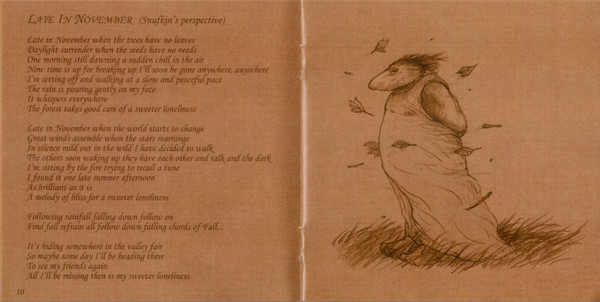 LATE IN NOVEMBER (Snufkin's perspective)
Late in November when the trees have no leaves
Daylight surrender when the seeds have no needs
One morning still dawning a sudden chill in the air
Now time is up for breaking up I'll soon be gone anywhere, anywhere
I'm setting off and walking at a slow and peaceful pace
The rain is pouring gently on my face
It whispers everywhere
The forest takes good care of a sweeter loneliness
Late in November when the world starts to change
Great winds assemble when the stars rearrange
In silence mild out in the wild I have decided to walk
The others soon waking up they have each other and talk and the dark
I'm sitting by the fire trying to recall a tune
I found it one late summer afternoon
As brilliant as it is
A melody of bliss for a sweeter loneliness
Following rainfall falling down follow on
Find fall refrain all follow down falling chords of Fall...
It's hiding somewhere in the valley fair
So maybe some day I'll be heading there
To see my friends again
All I'll be missing then is my sweeter loneliness
10